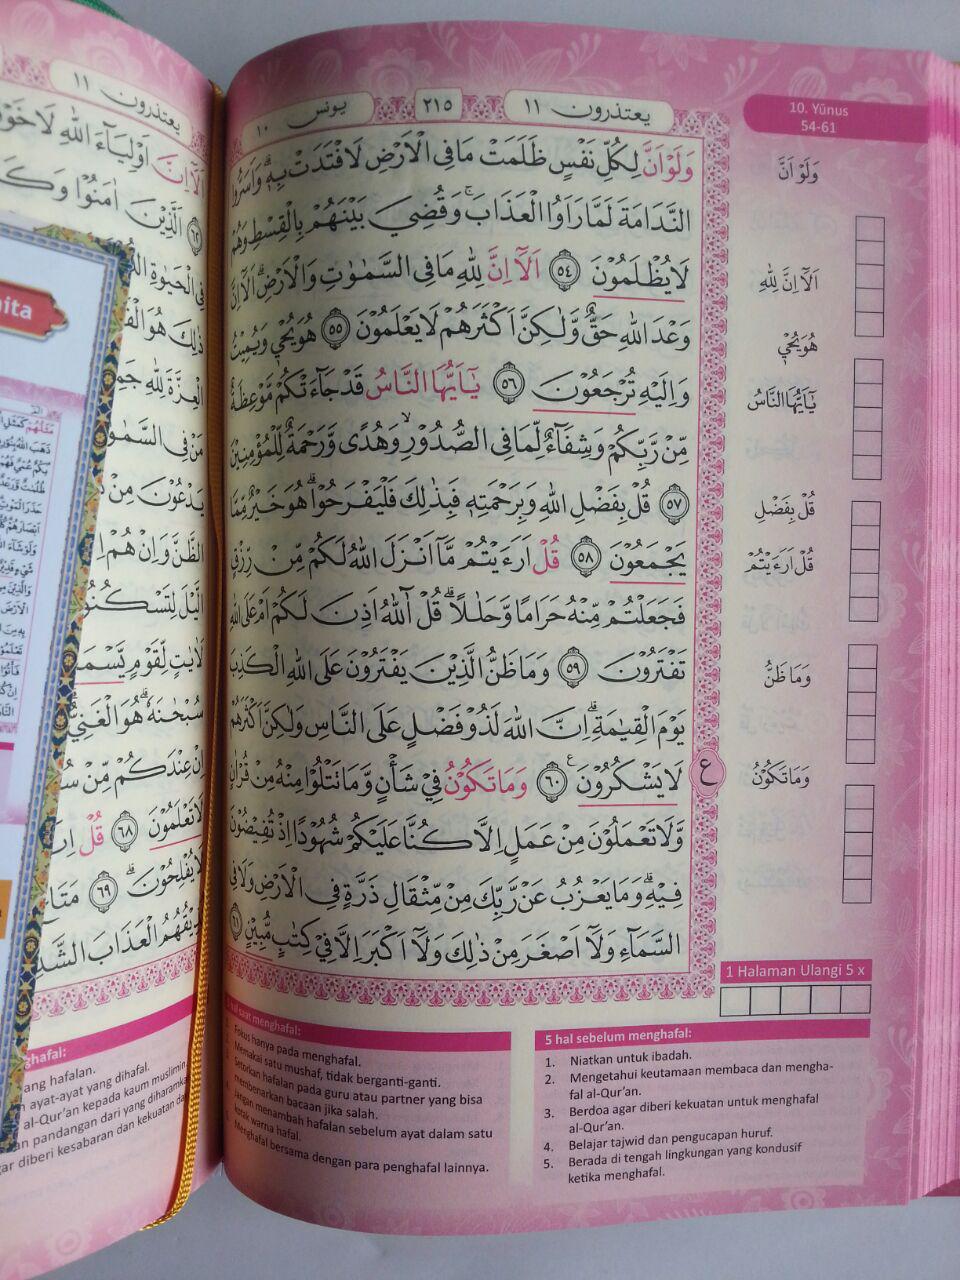 يعتذرون ١١
٢١٥
يونس ١٠
10. Yūnus
54-61
وَلَوْ اَنَّ لِكُلِّ نَفْسٍ ظَلَمَتْ مَا فِى الْاَرْضِ لَافْتَدَتْ بِهٖۗ وَاَسَرُّوا
النَّدَامَةَ لَمَّا رَاَوُا الْعَذَابَۚ وَقُضِيَ بَيْنَهُمْ بِالْقِسْطِ وَهُمْ
لَا يُظْلَمُوْنَ ٥٤ اَلَآ اِنَّ لِلّٰهِ مَا فِى السَّمٰوٰتِ وَالْاَرْضِۗ اَلَآ اِنَّ
وَعْدَ اللّٰهِ حَقٌّ وَّلٰكِنَّ اَكْثَرَهُمْ لَا يَعْلَمُوْنَ ٥٥ هُوَ يُحْيٖ وَيُمِيْتُ
وَاِلَيْهِ تُرْجَعُوْنَ ٥٦ يٰٓاَيُّهَا النَّاسُ قَدْ جَاۤءَتْكُمْ مَّوْعِظَةٌ
مِّنْ رَّبِّكُمْ وَشِفَاۤءٌ لِّمَا فِى الصُّدُوْرِۙ وَهُدًى وَّرَحْمَةٌ لِّلْمُؤْمِنِيْنَ
٥٧ قُلْ بِفَضْلِ اللّٰهِ وَبِرَحْمَتِهٖ فَبِذٰلِكَ فَلْيَفْرَحُوْاۗ هُوَ خَيْرٌ مِّمَّا
يَجْمَعُوْنَ ٥٨ قُلْ اَرَءَيْتُمْ مَّآ اَنْزَلَ اللّٰهُ لَكُمْ مِّنْ رِّزْقٍ
فَجَعَلْتُمْ مِّنْهُ حَرَامًا وَّحَلٰلًاۗ قُلْ اٰۤللّٰهُ اَذِنَ لَكُمْ اَمْ عَلَى اللّٰهِ
تَفْتَرُوْنَ ٥٩ وَمَا ظَنُّ الَّذِيْنَ يَفْتَرُوْنَ عَلَى اللّٰهِ الْكَذِبَ
يَوْمَ الْقِيٰمَةِۗ اِنَّ اللّٰهَ لَذُوْ فَضْلٍ عَلَى النَّاسِ وَلٰكِنَّ اَكْثَرَهُمْ
لَا يَشْكُرُوْنَ ٦٠ وَمَا تَكُوْنُ فِيْ شَأْنٍ وَّمَا تَتْلُوْا مِنْهُ مِنْ قُرْاٰنٍ
وَّلَا تَعْمَلُوْنَ مِنْ عَمَلٍ اِلَّا كُنَّا عَلَيْكُمْ شُهُوْدًا اِذْ تُفِيْضُوْنَ
فِيْهِۗ وَمَا يَعْزُبُ عَنْ رَّبِّكَ مِنْ مِّثْقَالِ ذَرَّةٍ فِى الْاَرْضِ وَلَا فِى
السَّمَاۤءِ وَلَآ اَصْغَرَ مِنْ ذٰلِكَ وَلَآ اَكْبَرَ اِلَّا فِيْ كِتٰبٍ مُّبِيْنٍ ٦١
ع
وَلَوْ اَنَّ
اَلَآ اِنَّ لِلّٰهِ
هُوَ يُحْيٖ
يٰٓاَيُّهَا النَّاسُ
قُلْ بِفَضْلِ
قُلْ اَرَءَيْتُمْ
وَمَا ظَنُّ
وَمَا تَكُوْنُ
1 Halaman Ulangi 5 x
5 hal sebelum menghafal:
1. Niatkan untuk ibadah.
2. Mengetahui keutamaan membaca dan mengha-
fal al-Qur’an.
3. Berdoa agar diberi kekuatan untuk menghafal
al-Qur’an.
4. Belajar tajwid dan pengucapan huruf.
5. Berada di tengah lingkungan yang kondusif
ketika menghafal.
hal saat menghafal:
Fokus hanya pada menghafal.
Memakai satu mushaf, tidak berganti-ganti.
Setorkan hafalan pada guru atau partner yang bisa
membenarkan bacaan jika salah.
Jangan menambah hafalan sebelum ayat dalam satu
kotak warna hafal.
Menghafal bersama dengan para penghafal lainnya.
يعتذرون ١١
اَلَآ اِنَّ اَوْلِيَاۤءَ اللّٰهِ لَا
٦٢ الَّذِيْنَ اٰمَنُوْا
فِى الْحَيٰوةِ
ذٰلِكَ هُوَ
الْعِزَّةَ لِلّٰهِ
مَنْ فِى
يَدْعُوْنَ مِنْ
الظَّنَّ وَاِنْ هُمْ
الَّيْلَ لِتَسْكُنُوْا
لَاٰيٰتٍ لِّقَوْمٍ
سُبْحٰنَهٗۗ هُوَ الْغَنِيُّ
اِنْ عِنْدَكُمْ مِّنْ
لَا تَعْلَمُوْنَ ٦٨ قُلْ
لَا يُفْلِحُوْنَۗ ٦٩
الْعَذَابَ
hafal:
ang hafalan.
ayat-ayat yang dihafal.
al-Qur’an kepada kaum muslimin.
an pandangan dari yang diharamka
ar diberi kesabaran dan kekuatan da